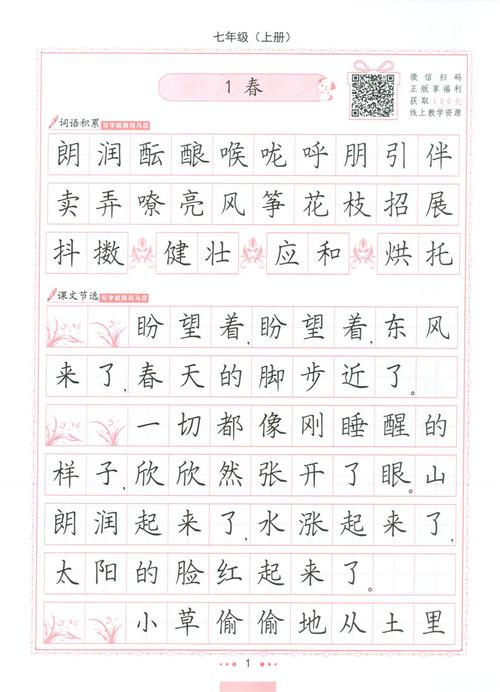 七年级（上册）
1 春
微信扫码
正版享福利
获取100元
线上教学资源
词语积累 写字就用司马彦
朗润酝酿喉咙呼朋引伴
卖弄嘹亮风筝花枝招展
抖擞 健壮 应和 烘托
课文节选 写字就用司马彦
盼望着,盼望着,东风
来了,春天的脚步近了。
一切都像刚睡醒的
样子,欣欣然张开了眼。山
朗润起来了,水涨起来了,
太阳的脸红起来了。
小草偷偷地从土里
1